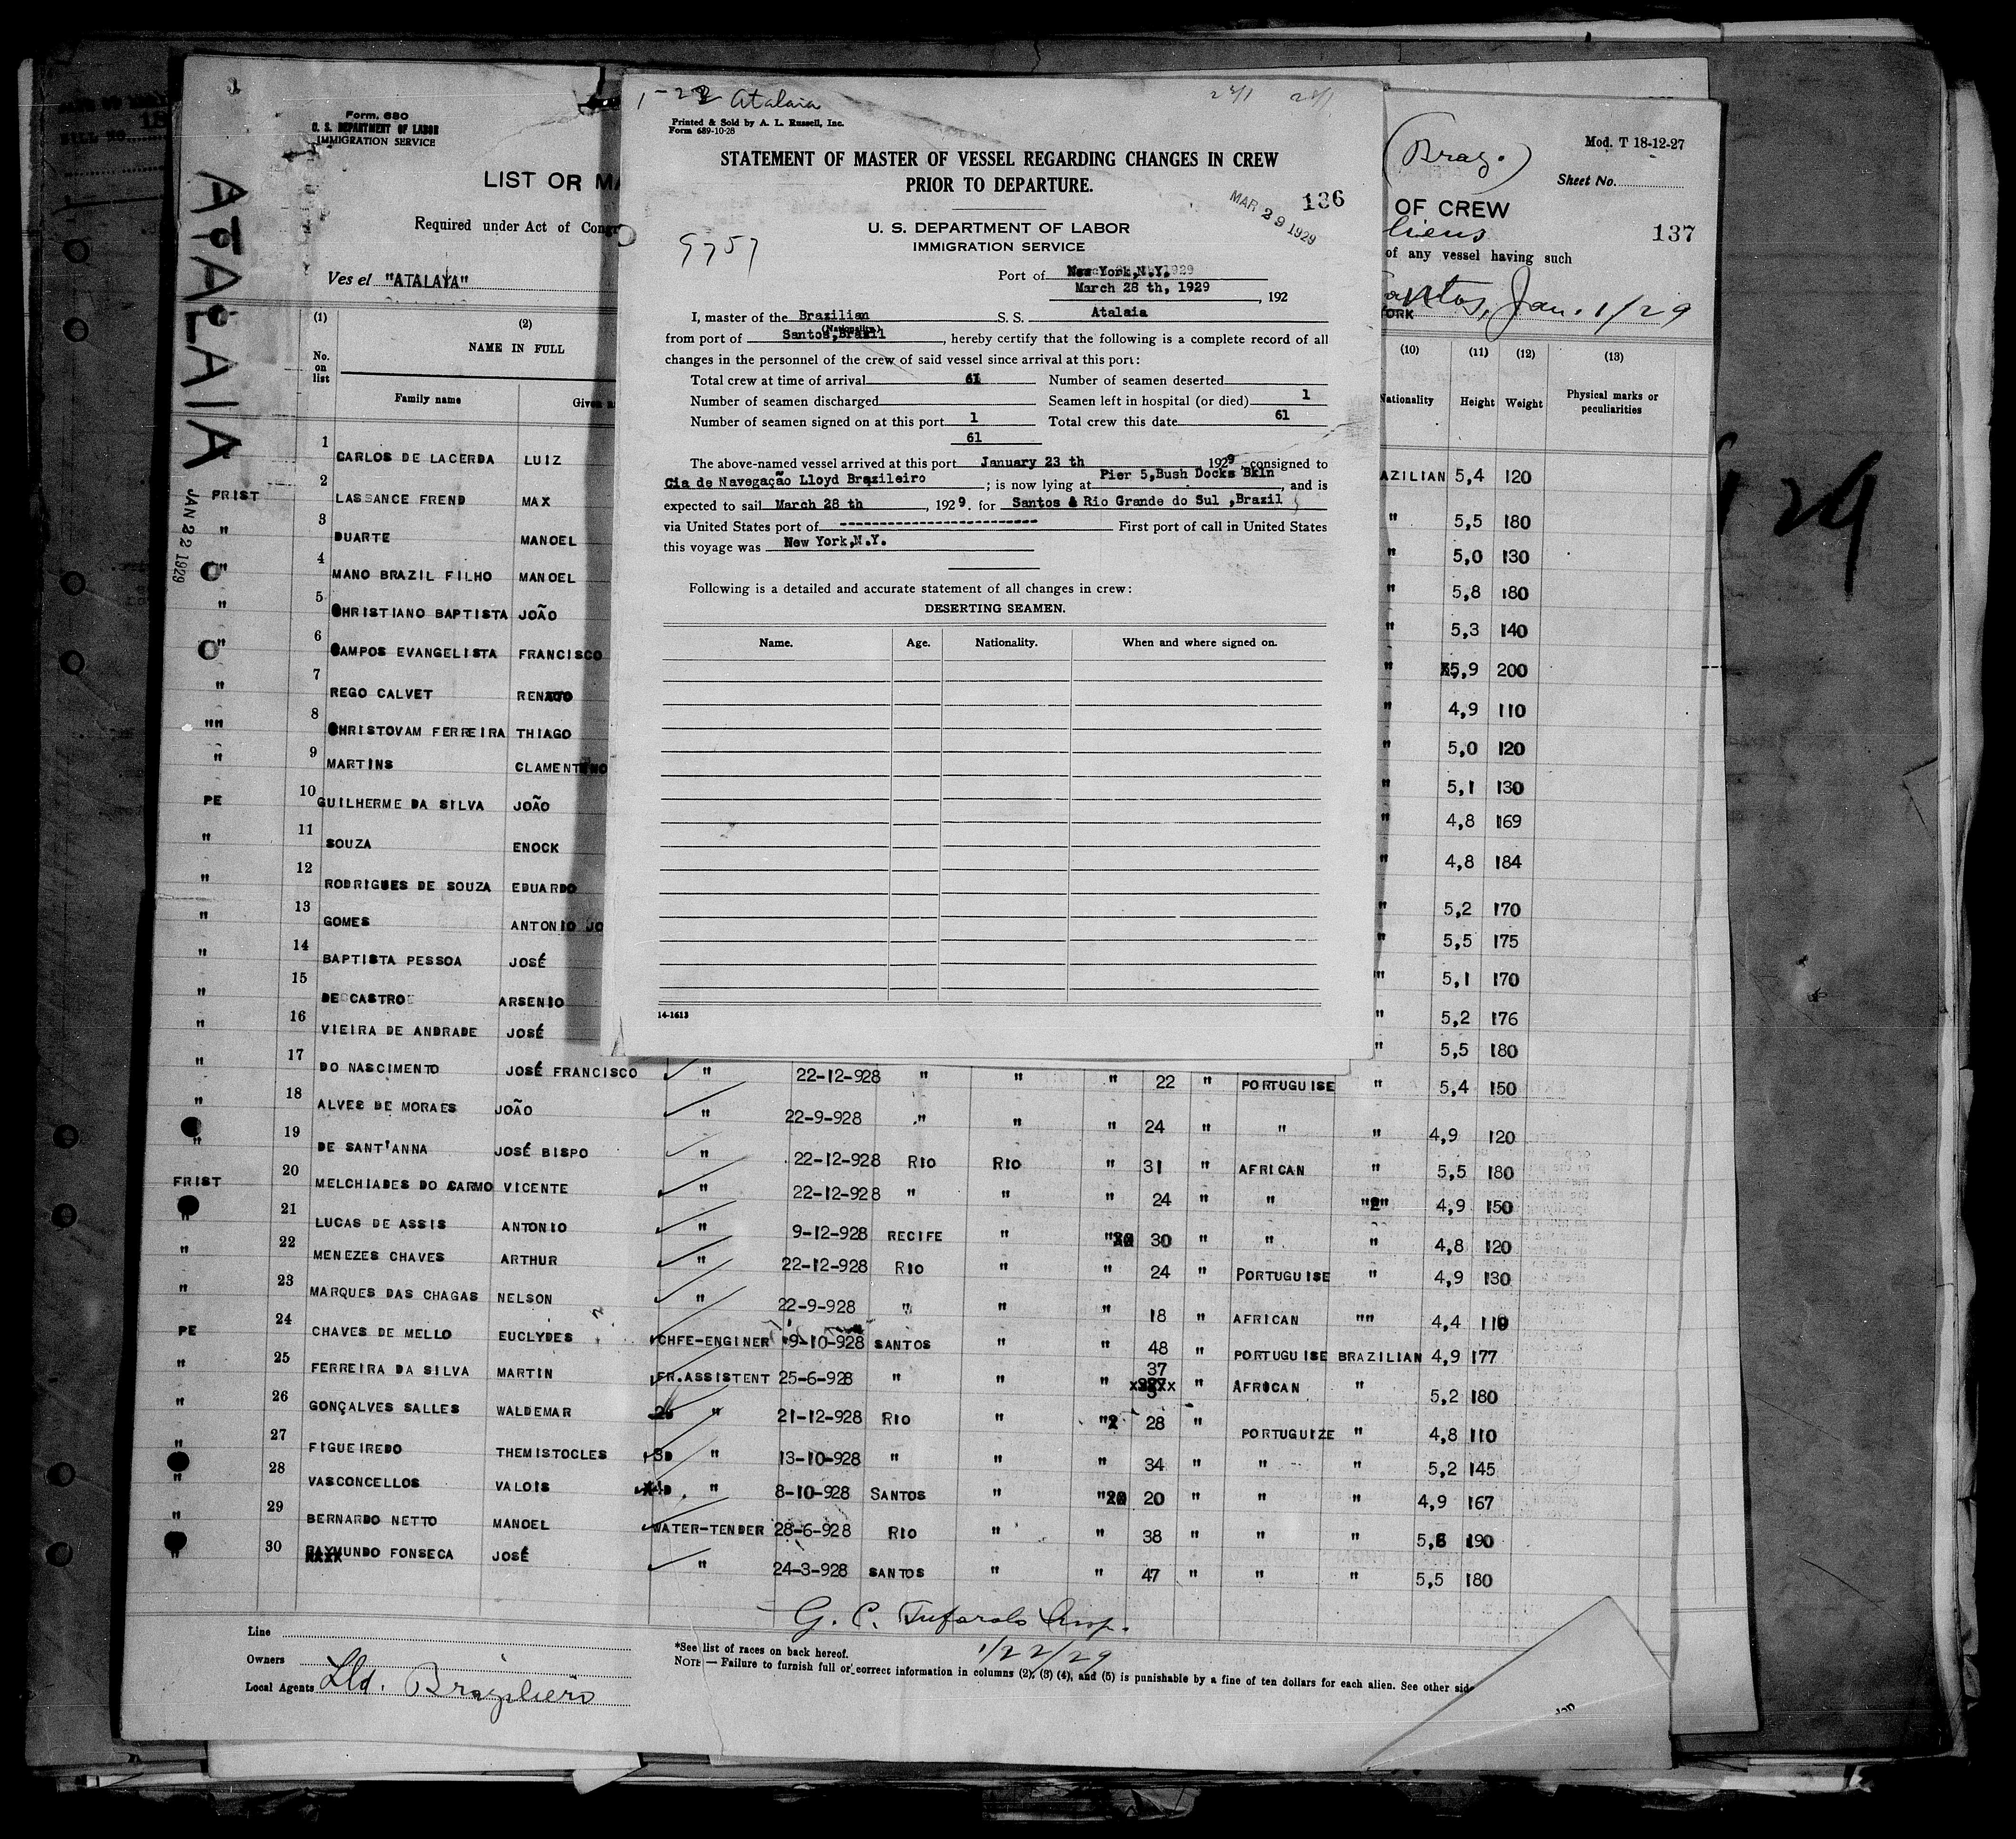 1-22 Atalaia
Printed & Sold by A. L. Russell, Inc.
Form 689-10-28
STATEMENT OF MASTER OF VESSEL REGARDING CHANGES IN CREW
PRIOR TO DEPARTURE.
136
MAR 29 1929
U. S. DEPARTMENT OF LABOR
IMMIGRATION SERVICE
9757
Port of New York, N.Y.
March 28 th, 1929, 192
I, master of the Brazilian S. S. Atalaia
(Nationality)
from port of Santos, Brazil, hereby certify that the following is a complete record of all
changes in the personnel of the crew of said vessel since arrival at this port:
Total crew at time of arrival 61 Number of seamen deserted
Number of seamen discharged Seamen left in hospital (or died) 1
Number of seamen signed on at this port 1 Total crew this date 61
61
The above-named vessel arrived at this port January 23 th 1929, consigned to
Cia de Navegação Lloyd Brazileiro; is now lying at Pier 5, Bush Docks Bkln, and is
expected to sail March 28 th, 1929. for Santos & Rio Grande do Sul, Brazil
via United States port of ------------------------ First port of call in United States
this voyage was New York, N.Y.
Following is a detailed and accurate statement of all changes in crew:
DESERTING SEAMEN.
Name. Age. Nationality. When and where signed on.
14-1613
ATALAIA
JAN 22 1929
Form. 680
U. S. DEPARTMENT OF LABOR
IMMIGRATION SERVICE
LIST OR MA
Required under Act of Congr
Ves el "ATALAYA"
(Braz.)
Mod. T 18-12-27
Sheet No.
OF CREW
liens
137
of any vessel having such
Santos, Jan. 1/29
ORK
(1) (2) (10) (11) (12) (13)
No. on list NAME IN FULL Nationality Height Weight Physical marks or peculiarities
Family name Given n
1 CARLOS DE LACERDA LUIZ AZILIAN 5,4 120
FRIST 2 LASSANCE FREND MAX " 5,5 180
" 3 DUARTE MANOEL " 5,0 130
" 4 MANO BRAZIL FILHO MANOEL " 5,8 180
" 5 CHRISTIANO BAPTISTA JOÃO " 5,3 140
" 6 CAMPOS EVANGELISTA FRANCISCO " 5,9 200
" 7 REGO CALVET RENATO " 4,9 110
"" 8 CHRISTOVAM FERREIRA THIAGO " 5,0 120
" 9 MARTINS CLAMENTINO " 5,1 130
PE 10 GUILHERME DA SILVA JOÃO " 4,8 169
" 11 SOUZA ENOCK " 4,8 184
" 12 RODRIGUES DE SOUZA EDUARDO " 5,2 170
" 13 GOMES ANTONIO JO " 5,5 175
" 14 BAPTISTA PESSOA JOSÉ " 5,1 170
" 15 DE CASTRO ARSENIO " 5,2 176
" 16 VIEIRA DE ANDRADE JOSÉ " 5,5 180
" 17 DO NASCIMENTO JOSÉ FRANCISCO " 22-12-928 " " " 22 " PORTUGUISE " 5,4 150
" 18 ALVES DE MORAES JOÃO " 22-9-928 " " " 24 " " " 4,9 120
" 19 DE SANT'ANNA JOSÉ BISPO " 22-12-928 RIO RIO " 31 " AFRICAN " 5,5 180
FRIST 20 MELCHIADES DO CARMO VICENTE " 22-12-928 " " " 24 " " " 4,9 150
" 21 LUCAS DE ASSIS ANTONIO " 9-12-928 RECIFE " " 30 " " " 4,8 120
" 22 MENEZES CHAVES ARTHUR " 22-12-928 RIO " " 24 " PORTUGUISE " 4,9 130
" 23 MARQUES DAS CHAGAS NELSON " 22-9-928 " " " 18 " AFRICAN "" 4,4 110
PE 24 CHAVES DE MELLO EUCLYDES CHFE-ENGINER 9-10-928 SANTOS " " 48 " PORTUGUISE BRAZILIAN 4,9 177
" 25 FERREIRA DA SILVA MARTIN FR.ASSISTENT 25-6-928 " " " 37 " AFRICAN " 5,2 180
" 26 GONÇALVES SALLES WALDEMAR " 21-12-928 RIO " " 28 " PORTUGUIZE " 4,8 110
" 27 FIGUEIREDO THEMISTOCLES 3D " 13-10-928 " " " 34 " " " 5,2 145
" 28 VASCONCELLOS VALOIS " 8-10-928 SANTOS " " 20 " " " 4,9 167
" 29 BERNARDO NETTO MANOEL WATER-TENDER 28-6-928 RIO " " 38 " " " 5,6 190
" 30 RAYMUNDO FONSECA JOSÉ " 24-3-928 SANTOS " " 47 " " " 5,5 180
Line
Owners
Local Agents Lld. Braziliero
1/22/29
*See list of races on back hereof.
NOTE — Failure to furnish full or correct information in columns (2), (3) (4), and (5) is punishable by a fine of ten dollars for each alien. See other side
29